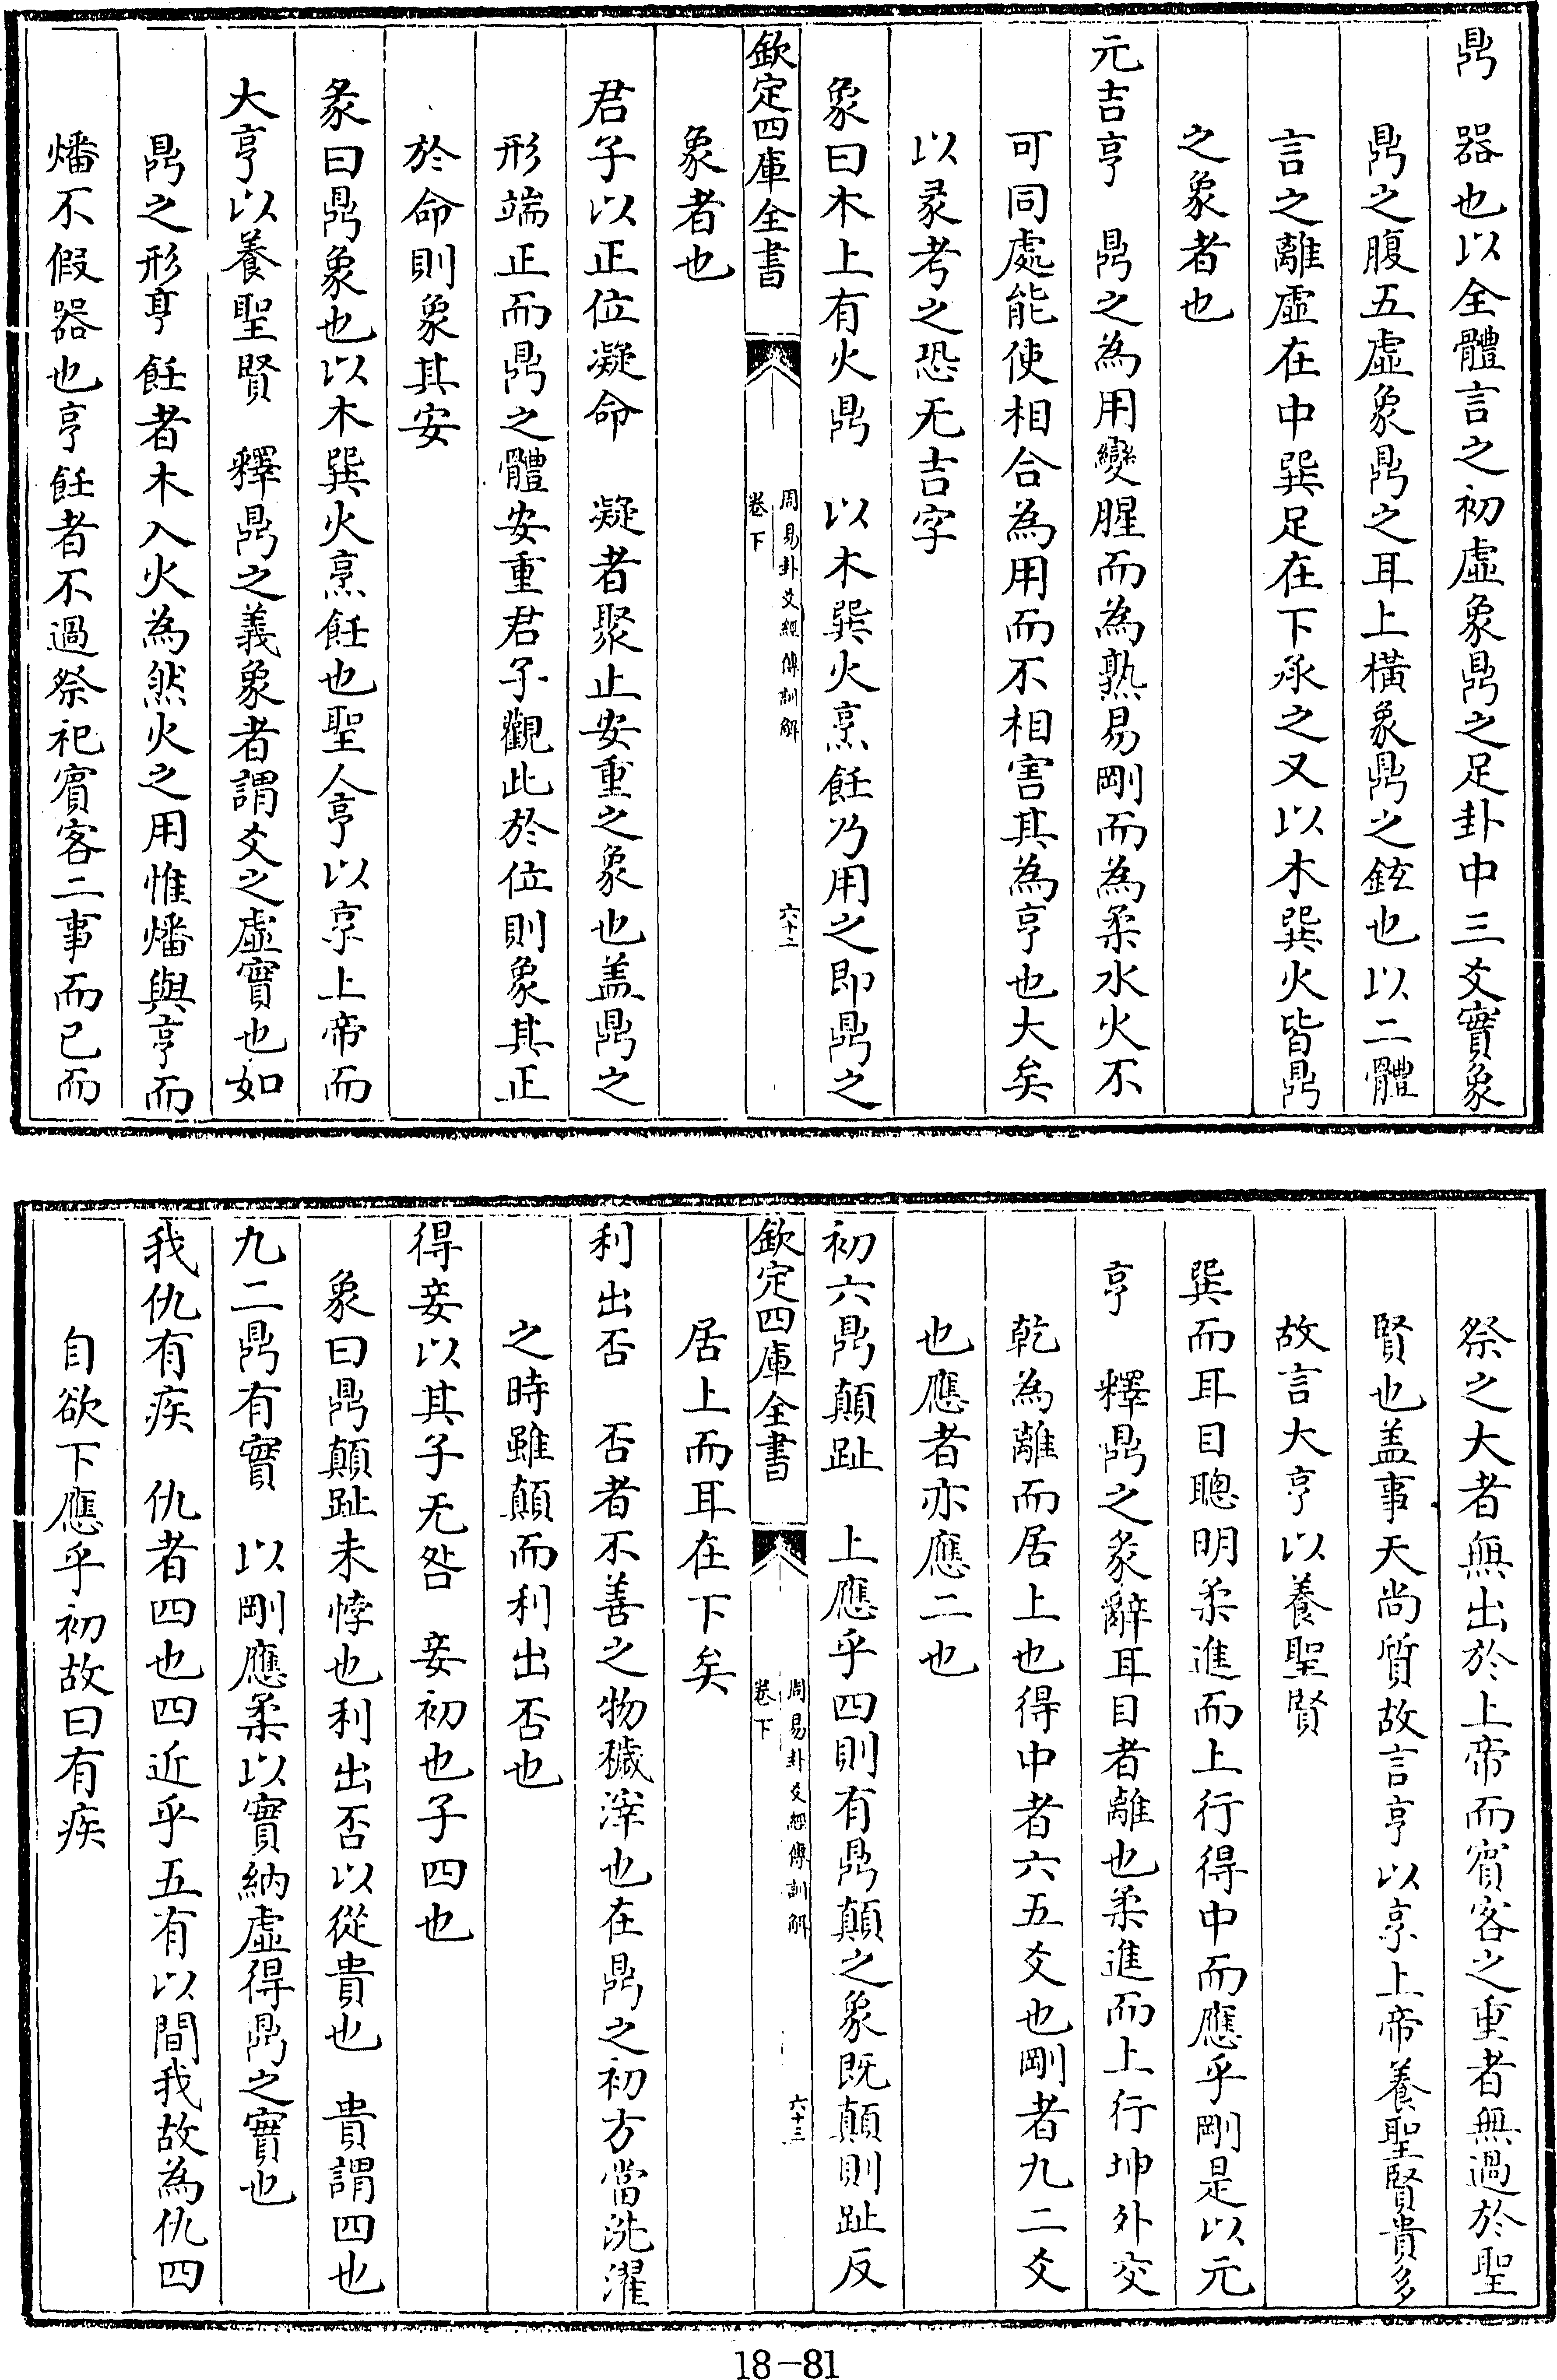 鼎　器也以全體言之初虛象鼎之足卦中三爻實象
鼎之腹五虛象鼎之耳上橫象鼎之鉉也以二體
言之離虛在中巽足在下承之又以木巽火皆鼎
之象者也
元吉亨　鼎之為用變腥而為熟易剛而為柔水火不
可同處能使相合為用而不相害其為亨也大矣
以彖考之恐无吉字
象曰木上有火鼎　以木巽火烹飪乃用之即鼎之
欽定四庫全書
周易卦爻經傳訓解
卷下
六十二
象者也
君子以正位凝命　凝者聚止安重之象也盖鼎之
形端正而鼎之體安重君子觀此於位則象其正
於命則象其安
彖曰鼎象也以木巽火烹飪也聖人亨以享上帝而
大亨以養聖賢　釋鼎之義象者謂爻之虛實也如
鼎之形亨飪者木入火為然火之用惟燔與亨而
燔不假器也亨飪者不過祭祀賓客二事而已而
祭之大者無出於上帝而賓客之重者無過於聖
賢也盖事天尚質故言亨以享上帝養聖賢貴多
故言大亨以養聖賢
巽而耳目聰明柔進而上行得中而應乎剛是以元
亨　釋鼎之彖辭耳目者離也柔進而上行坤外交
乾為離而居上也得中者六五爻也剛者九二爻
也應者亦應二也
初六鼎顛趾　上應乎四則有鼎顛之象既顛則趾反
欽定四庫全書
周易卦爻經傳訓解
卷下
六十三
居上而耳在下矣
利出否　否者不善之物穢滓也在鼎之初方當洗濯
之時雖顛而利出否也
得妾以其子无咎　妾初也子四也
象曰鼎顛趾未悖也利出否以從貴也　貴謂四也
九二鼎有實　以剛應柔以實納虛得鼎之實也
我仇有疾　仇者四也四近乎五有以間我故為仇四
自欲下應乎初故曰有疾
18-81